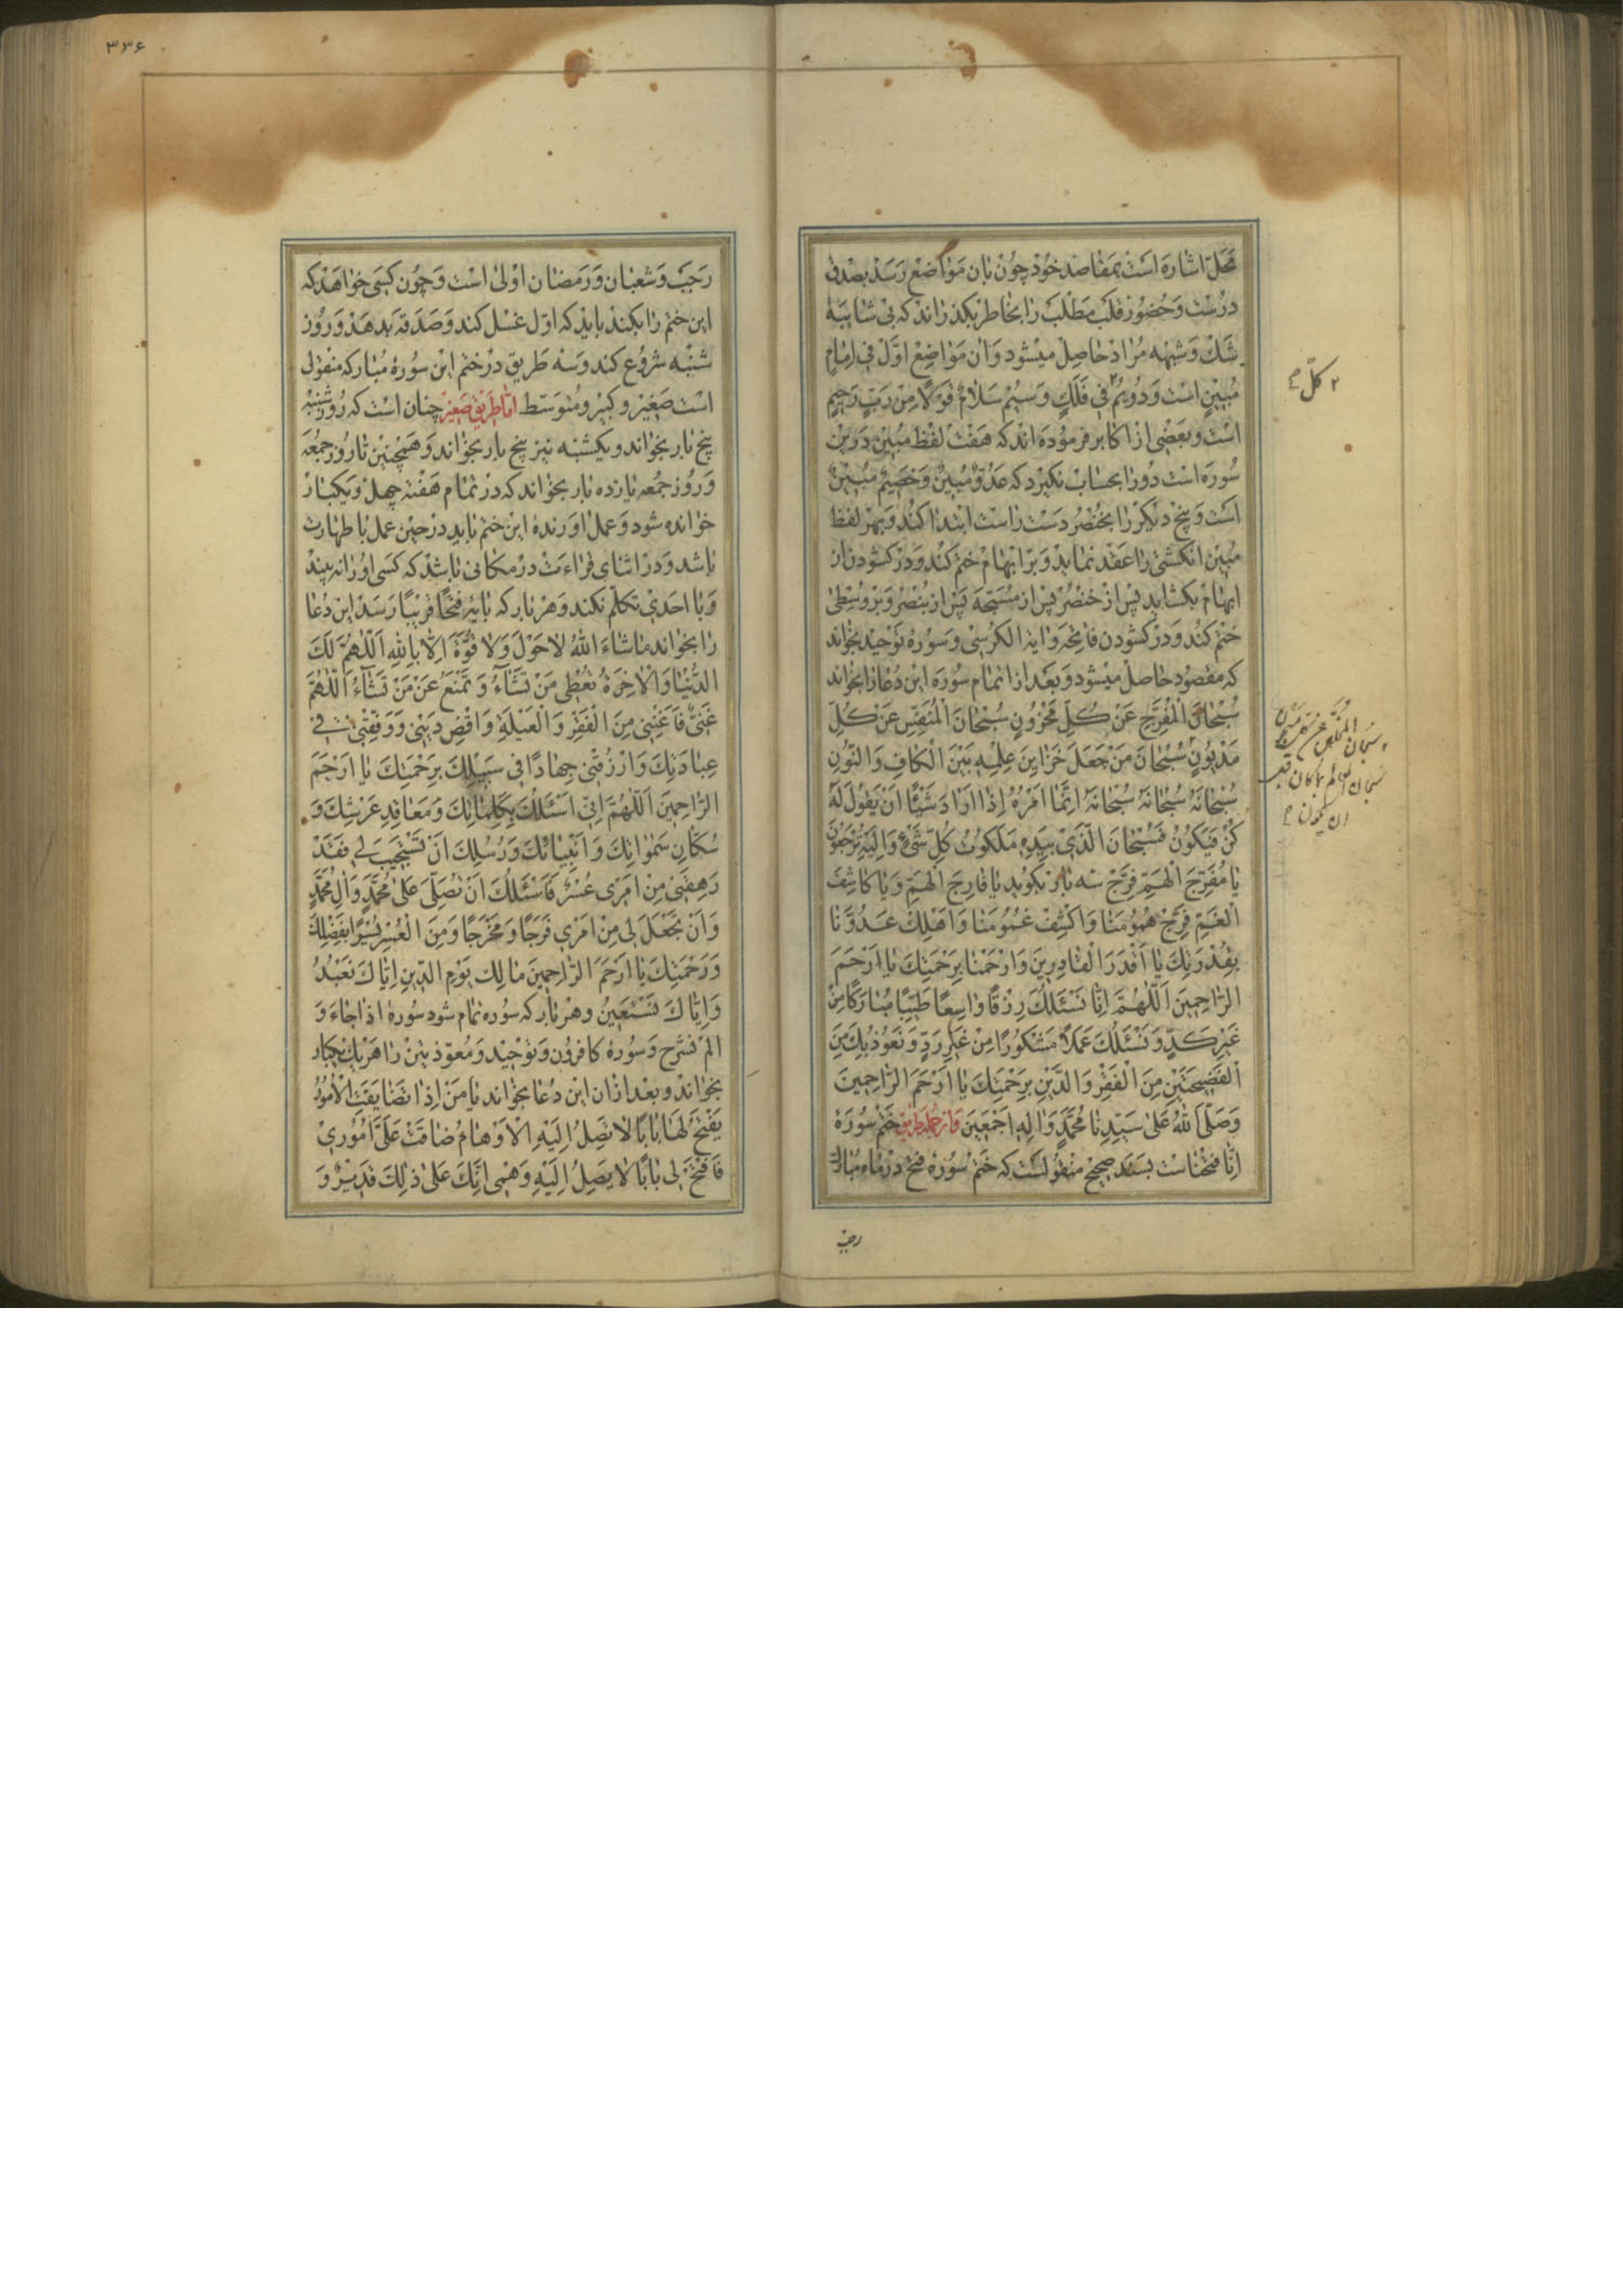 محل اشاره است بمقاصد خود چون بان مواضع رسد بصدق
درست و حضور قلب مطلب را بخاطر بگذراند که بی شایبه
شک و شبهه مراد حاصل میشود و ان مواضع اول فی امام
مبین است و دویم فی فلک و سیم سلام قولا من رب رحیم
است و بعضی از اکابر فرموده اند که هفت لفظ مبین درین
سوره است دو را بحساب نگیرد که عدو مبین و خصیم مبین
است و پنج دیگر را بخنصر دست راست ابتدا کند و بهر لفظ
مبین انگشتی را عقد نماید و بر ابهام ختم کند و در کشودن از
ابهام بکشاید پس از خنصر پس از مسبحه پس از بنصر و بر وسطی
ختم کند و در کشودن فاتحه و ایة الکرسی و سوره توحید بخواند
که مقصود حاصل میشود و بعد از اتمام سوره این دعا را بخواند
سُبْحَانَ الْمُفَرِّجِ عَنْ كُلِّ مَحْزُونٍ سُبْحَانَ الْمُنَفِّسِ عَنْ كُلِّ
مَدْيُونٍ سُبْحَانَ مَنْ جَعَلَ خَزَايِنَ عِلْمِهِ بَيْنَ الْكَافِ وَالنُّونِ
سُبْحَانَهُ سُبْحَانَهُ سُبْحَانَهُ اِنَّمَا اَمْرُهُ اِذَا اَرَادَ شَيْئًا اَنْ يَقُولَ لَهُ
كُنْ فَيَكُونُ فَسُبْحَانَ الَّذِي بِيَدِهِ مَلَكُوتُ كُلِّ شَيْءٍ وَاِلَيْهِ تُرْجَعُونَ
يَا مُفَرِّجَ الْهَمِّ فَرِّجْ سه بار بگوید يَا فَارِجَ الْهَمِّ وَيَا كَاشِفَ
الْغَمِّ فَرِّجْ هُمُومَنَا وَاكْشِفْ غُمُومَنَا وَاَهْلِكْ عَدُوَّنَا
بِقُدْرَتِكَ يَا اَقْدَرَ الْقَادِرِينَ وَارْحَمْنَا بِرَحْمَتِكَ يَا اَرْحَمَ
الرَّاحِمِينَ اَللّٰهُمَّ اِنَّا نَسْئَلُكَ رِزْقًا وَاسِعًا طَيِّبًا مُبَارَكًا مِنْ
غَيْرِ كَدٍّ وَنَسْئَلُكَ عَمَلًا مَشْكُورًا مِنْ غَيْرِ رَدٍّ وَنَعُوذُ بِكَ مِنَ
الْفَضِيحَتَيْنِ مِنَ الْفَقْرِ وَالدَّيْنِ بِرَحْمَتِكَ يَا اَرْحَمَ الرَّاحِمِينَ
وَصَلَّى اللهُ عَلٰى سَيِّدِنَا مُحَمَّدٍ وَاٰلِهِ اَجْمَعِينَ و از جمله طریق ختم سوره
انا فتحنا است بسند صحیح منقولست که ختم سوره فتح در ماه مبارك
رجب
۲ كلّ
سبحان المخلص عن كل مسجون
سبحان العالم بما كان قبل
ان يكون
۳۳۶
رجب و شعبان و رمضان اولی است و چون کسی خواهد که
این ختم را بکند باید که اول غسل کند و صدقه بدهد و روز
شنبه شروع کند و سه طریق در ختم این سوره مبارکه منقول
است صغیر و کبیر و متوسط اما طریق صغیر چنان است که روز شنبه
پنج بار بخواند و یکشنبه نیز پنج بار بخواند و همچنین تا روز جمعه
و روز جمعه یازده بار بخواند که در تمام هفته چهل و یکبار
خوانده شود و عمل اورنده این ختم باید در حین عمل با طهارت
باشد و در اثنای قراءت در مکانی باشد که کسی او را نه بیند
و با احدی تکلم نکند و هر بار که بایه فَتْحًا قَرِيبًا رسد این دعا
را بخواند مَا شَاءَ اللهُ لَا حَوْلَ وَلَا قُوَّةَ اِلَّا بِاللهِ اَللّٰهُمَّ لَكَ
الدُّنْيَا وَالْاٰخِرَةُ تُعْطِي مَنْ تَشَاءُ وَتَمْنَعُ عَنْ مَنْ تَشَاءُ اَللّٰهُمَّ
غَنِيٌّ فَاَغْنِنِي مِنَ الْفَقْرِ وَالْعَيْلَةِ وَاقْضِ دَيْنِي وَوَفِّقْنِي فِي
عِبَادَتِكَ وَارْزُقْنِي جِهَادًا فِي سَبِيلِكَ بِرَحْمَتِكَ يَا اَرْحَمَ
الرَّاحِمِينَ اَللّٰهُمَّ اِنِّي اَسْئَلُكَ بِكَلِمَاتِكَ وَمَعَاقِدِ عَرْشِكَ وَ
سُكَّانِ سَمٰوَاتِكَ وَاَنْبِيَائِكَ وَرُسُلِكَ اَنْ تَسْتَجِيبَ لِي فَقَدْ
رَهِقَنِي مِنْ اَمْرِي عُسْرٌ فَاَسْئَلُكَ اَنْ تُصَلِّيَ عَلٰى مُحَمَّدٍ وَاٰلِ مُحَمَّدٍ
وَاَنْ تَجْعَلَ لِي مِنْ اَمْرِي فَرَجًا وَمَخْرَجًا وَمِنَ الْعُسْرِ يُسْرًا بِفَضْلِكَ
وَرَحْمَتِكَ يَا اَرْحَمَ الرَّاحِمِينَ مَالِكِ يَوْمِ الدِّينِ اِيَّاكَ نَعْبُدُ
وَاِيَّاكَ نَسْتَعِينُ و هر بار که سوره تمام شود سوره اذا جاء و
الم نشرح و سوره کافرون و توحید و معوذتین را هر یك یکبار
بخواند و بعد از ان این دعا بخواند يَا مَنْ اِذَا تَضَايَقَتِ الْاُمُورُ
يَفْتَحُ لَهَا بَابًا لَا تَصِلُ اِلَيْهِ الْاَوْهَامُ ضَاقَتْ عَلَيَّ اُمُورِي
فَافْتَحْ لِي بَابًا لَا يَصِلُ اِلَيْهِ وَهْمِي اِنَّكَ عَلٰى ذٰلِكَ قَدِيرٌ وَ